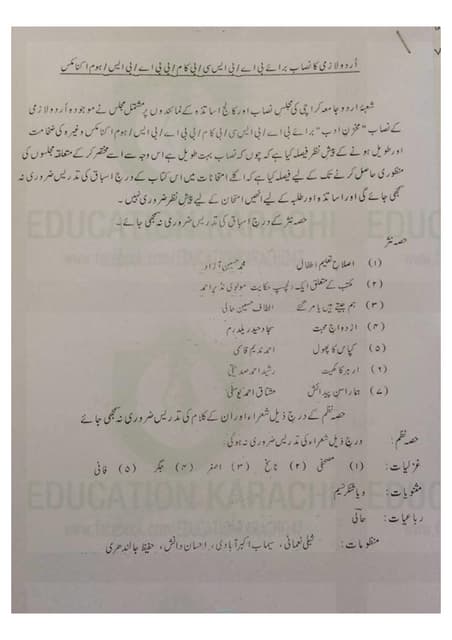 اُردو لازمی کا نصاب برائے بی اے/بی ایس سی/بی کام/بی بی اے/بی ایس/ہوم اکنامکس
شعبۂ اردو جامعہ کراچی کی مجلس نصاب اور کالج اساتذہ کے نمائندوں پر مشتمل مجلس نے موجودہ اُردو لازمی
کے نصاب "مخزن ادب" برائے بی اے/بی ایس سی/بی کام/بی بی اے/بی ایس/ہوم اکنامکس وغیرہ کی ضخامت
اور طویل ہونے کے پیش نظر فیصلہ کیا ہے کہ چوں کہ نصاب بہت طویل ہے اس وجہ سے اسے مختصر کر کے متعلقہ مجلسوں کی
منظوری حاصل کرنے تک کے لیے فیصلہ کیا ہے کہ اگلے امتحانات میں اس کتاب کے درج اسباق کی تدریس ضروری نہ
سمجھی جائے گی اور اساتذہ اور طلبہ کے لیے انھیں امتحان کے لیے پیش نظر ضروری نہیں۔
حصہ نثر کے درج اسباق کی تدریس ضروری نہ سمجھی جائے۔
حصہ نثر
(۱) اصلاح تعلیم اطفال محمد حسین آزاد
(۲) مکتب کے متعلق ایک دلچسپ حکایت مولوی نذیر احمد
(۳) ہم جیتے ہیں یا مر گئے الطاف حسین حالی
(۴) ازدواج محبت سجاد حیدر یلدرم
(۵) کپاس کا پھول احمد ندیم قاسمی
(۶) ارہر کا کھیت رشید احمد صدیقی
(۷) ہمارا سن پیدائش مشتاق احمد یوسفی
حصہ نظم کے درج ذیل شعراء اور ان کے کلام کی تدریس ضروری نہ سمجھی جائے
حصہ نظم: درج ذیل شعراء کی تدریس ضروری نہ ہوگی۔
غزلیات: (۱) مصحفی (۲) ناسخ (۳) اصغر (۴) جگر (۵) فانی
مثنویات: دیا شنکر نسیم
رباعیات: حالی
منظومات: شبلی نعمانی، سیماب اکبر آبادی، احسان دانش، حفیظ جالندھری
EDUCATION KARACHI
EDUCATION KARACHI